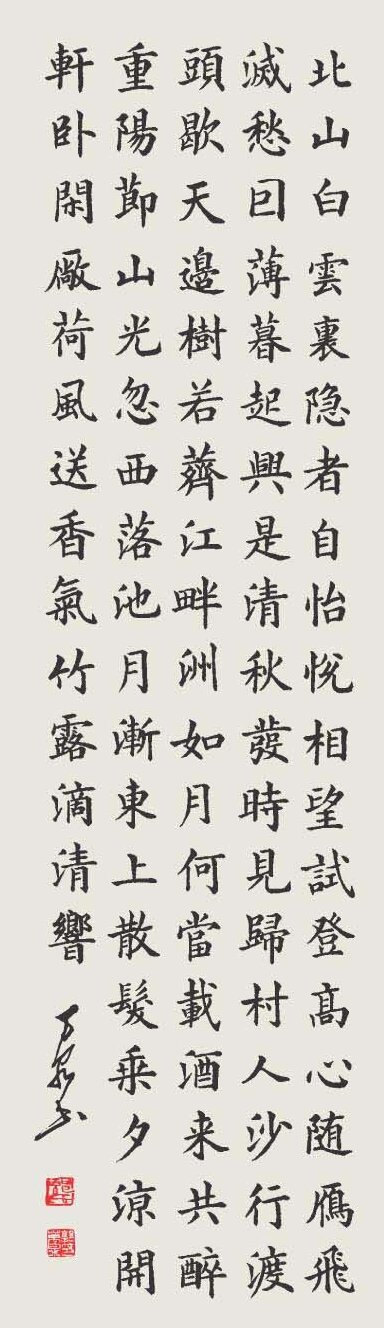 北山白雲裏隐者自怡悅相望試登高心随鴈飛
滅愁囙薄暮起興是清秋發時見歸村人沙行渡
頭歇天邊樹若薺江畔洲如月何當載酒来共醉
重陽節山光忽西落池月漸東上散髮乗夕涼開
軒卧閑厰荷風送香氣竹露滴清響